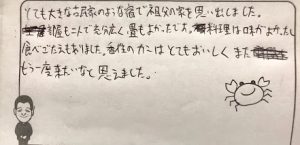 とても大きな古民家のような宿で祖父の家を思い出しました。
部屋も二人で充分広く畳もよかったです。料理は味がよかったし
食べごたえもありました。香住のカニはとてもおいしく また
もう一度来たいなと思えました。